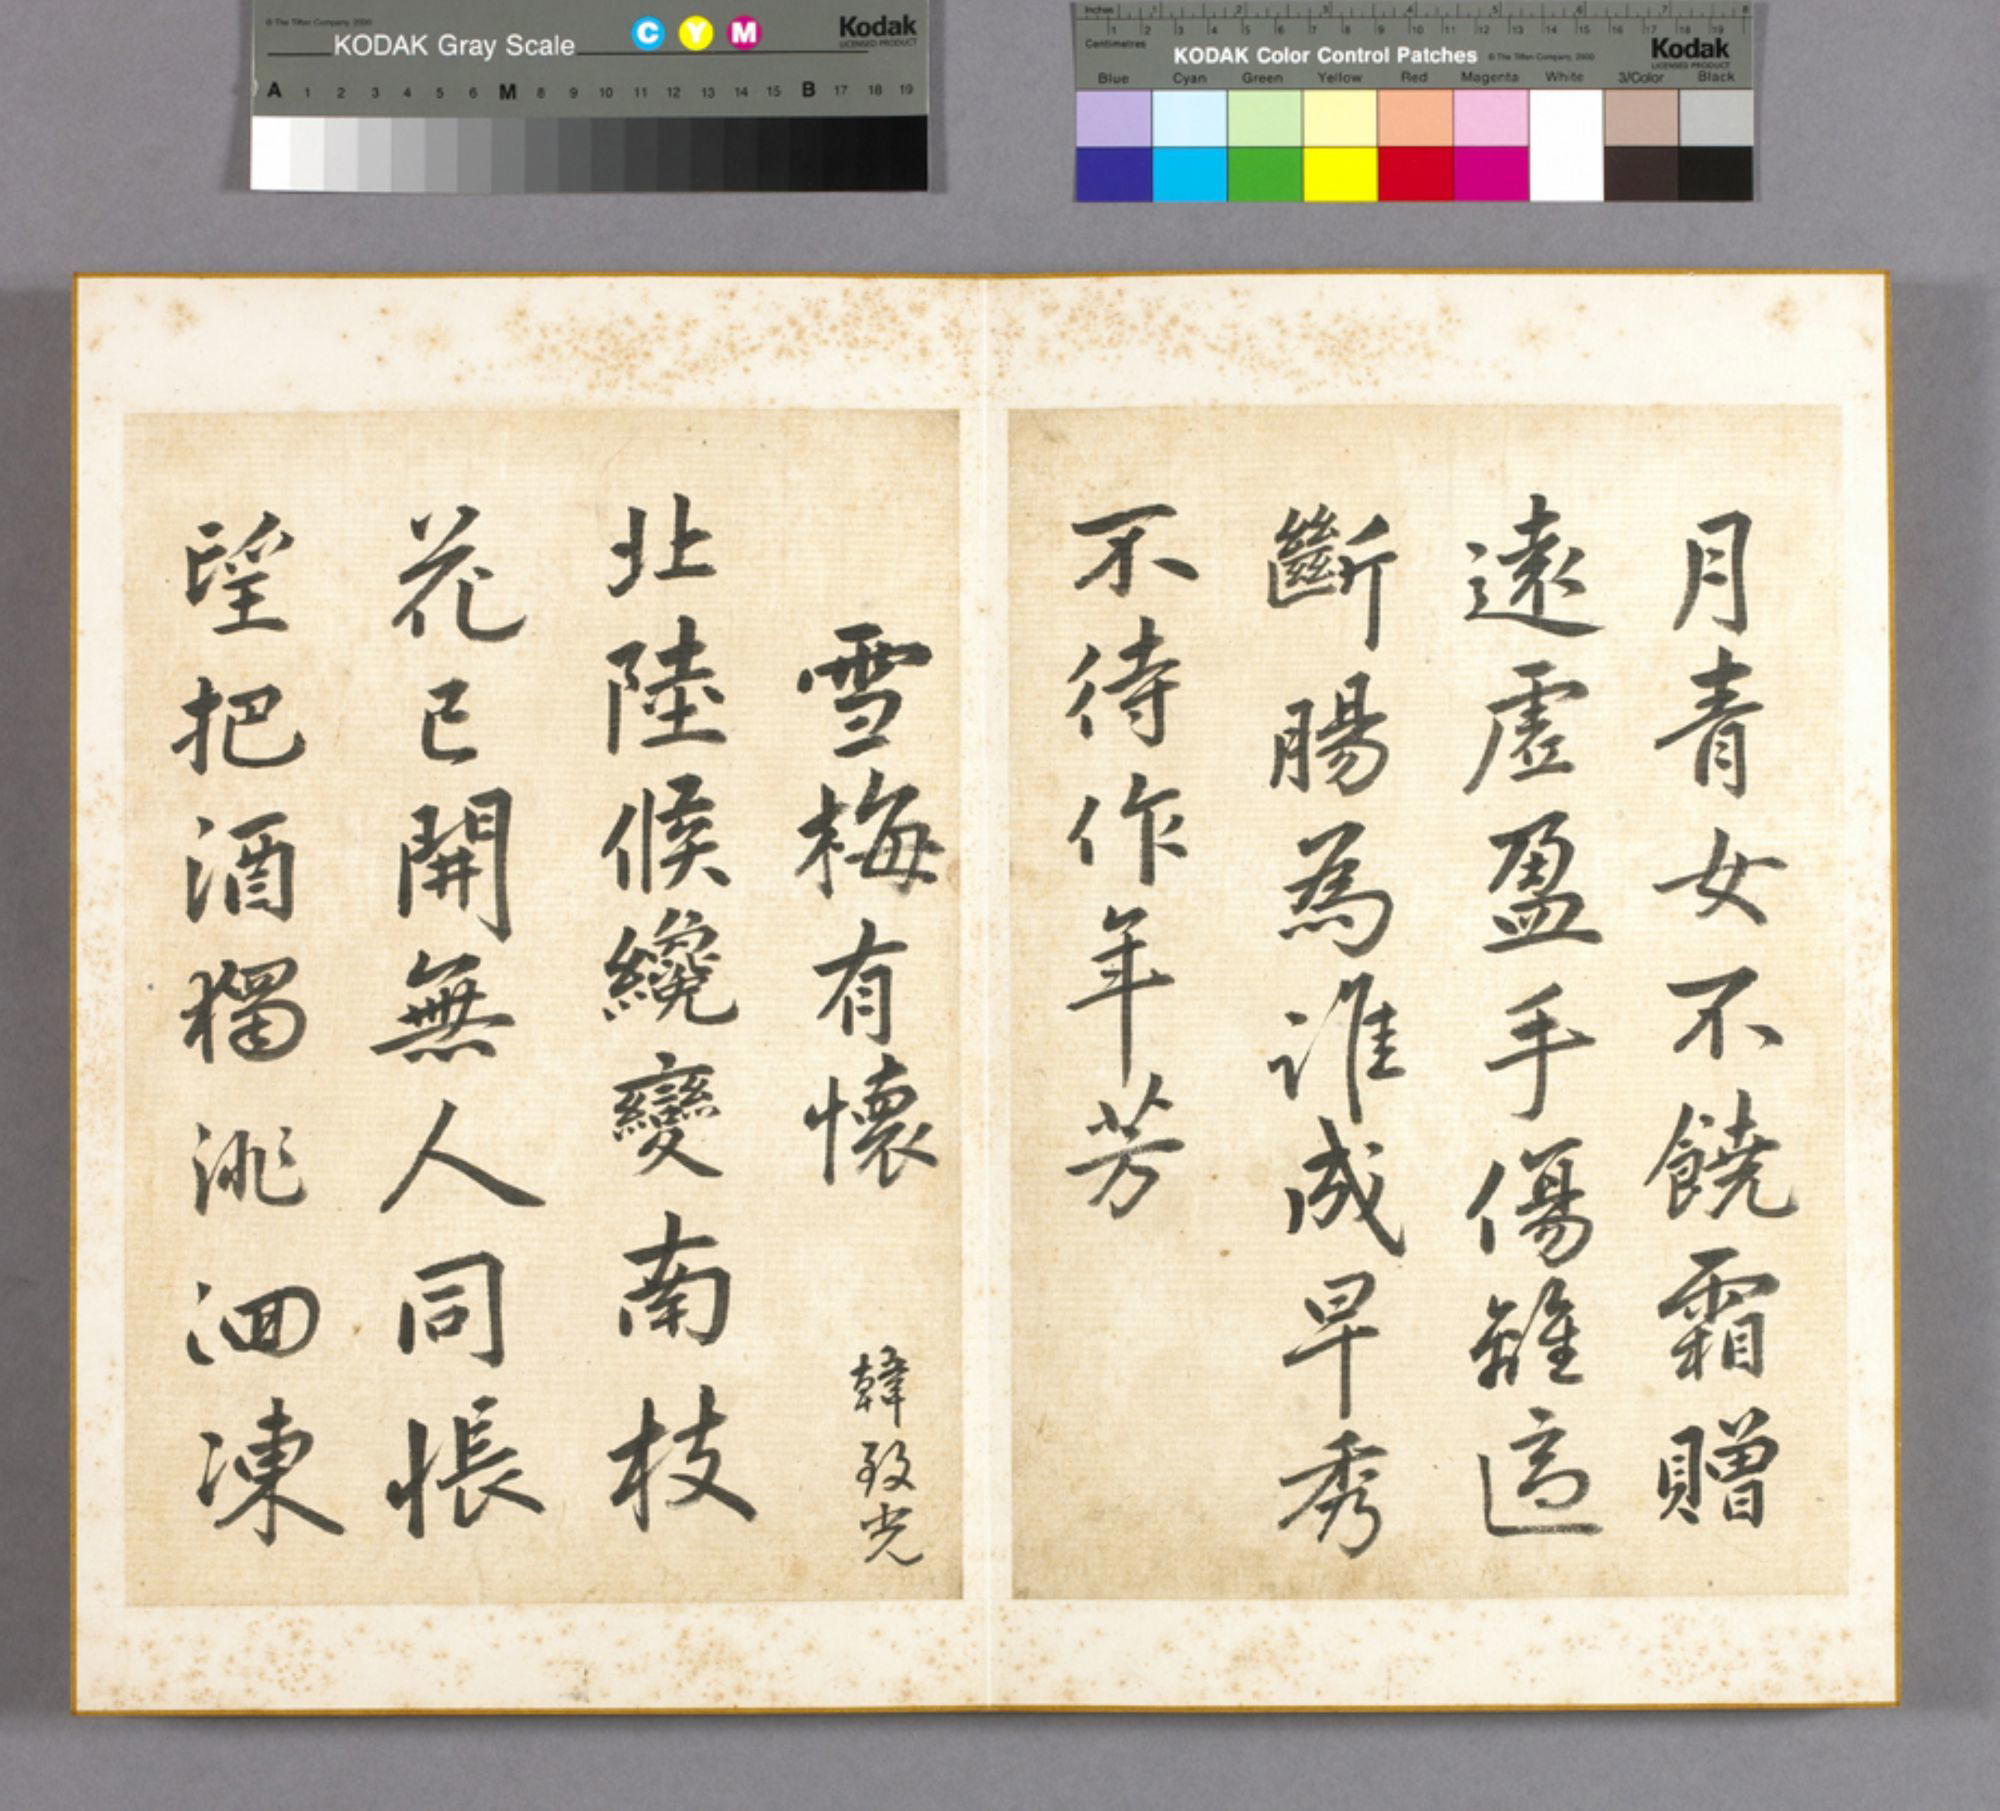 © The Tiffen Company, 2000
KODAK Gray Scale
C Y M
Kodak
LICENSED PRODUCT
A 1 2 3 4 5 6 M 8 9 10 11 12 13 14 15 B 17 18 19
Inches 1 2 3 4 5 6 7 8
Centimetres 1 2 3 4 5 6 7 8 9 10 11 12 13 14 15 16 17 18 19
KODAK Color Control Patches
© The Tiffen Company, 2000
Kodak
LICENSED PRODUCT
Blue Cyan Green Yellow Red Magenta White 3/Color Black
月青女不饒霜贈
遠虛盈手傷離適
斷腸為誰成早秀
不待作年芳
雪梅有懷 韓致光
北陸候纔變南枝
花已開無人同悵
望把酒獨洮洄凍